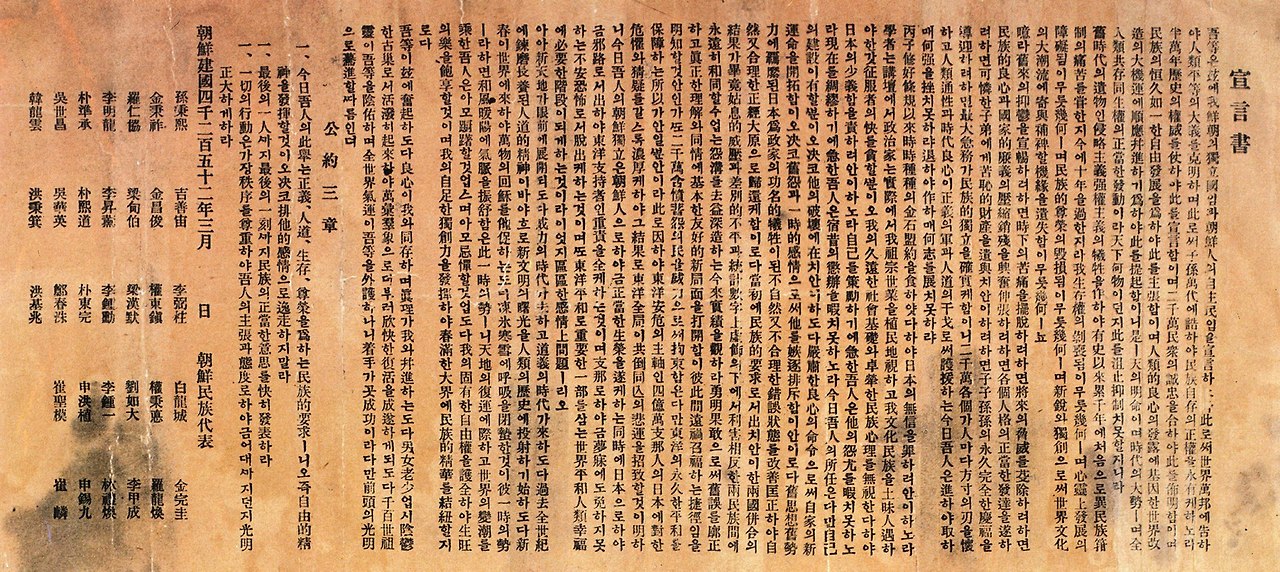 宣言書
吾等은玆에我鮮朝의獨立國임과朝鮮人의自主民임을宣言하노라此로써世界萬邦에告하
야人類平等의大義를克明하며此로써子孫萬代에誥하야民族自存의正權을永有케하노라
半萬年歷史의權威를仗하야此를宣言함이며二千萬民衆의誠忠을合하야此를佈明함이며
民族의恒久如一한自由發展을爲하야此를主張함이며人類的良心의發露에基因한世界改
造의大機運에順應幷進하기爲하야此를提起함이니是ㅣ天의明命이며時代의大勢ㅣ며全
人類共存同生權의正當한發動이라天下何物이던지此를沮止抑制치못할지니라
舊時代의遺物인侵略主義强權主義의犧牲을作하야有史以來累千年에처음으로異民族箝
制의痛苦를嘗한지今에十年을過한지라我生存權의剝喪됨이무릇幾何ㅣ며心靈上發展의
障礙됨이무릇幾何ㅣ며民族的尊榮의毁損됨이무릇幾何ㅣ며新銳와獨創으로써世界文化
의大潮流에寄與補裨할機緣을遺失함이무릇幾何ㅣ뇨
噫라舊來의抑鬱을宣暢하려하면時下의苦痛을擺脫하려하면將來의脅威를芟除하려하면
民族的良心과國家的廉義의壓縮銷殘을興奮伸張하려하면各個人格의正當한發達을遂하
려하면可憐한子弟에게苦恥的財產을遺與치안이하려하면子子孫孫의永久完全한慶福을
導迎하려하면最大急務가民族的獨立을確實케함이니二千萬各個가人마다方寸의刃을懷
하고人類通性과時代良心이正義의軍과人道의干戈로써護援하는今日吾人은進하야取하
매何强을挫치못하랴退하야作하매何志를展치못하랴
丙子修好條規以來時時種種의金石盟約을食하얏다하야日本의無信을罪하려안이하노라
學者는講壇에서政治家는實際에서我祖宗世業을植民地視하고我文化民族을土昧人遇하
야한갓征服者의快를貪할뿐이오我의久遠한社會基礎와卓犖한民族心理를無視한다하야
日本의少義함을責하려안이하노라自己를策勵하기에急한吾人은他의怨尤를暇치못하노
라現在를綢繆하기에急한吾人은宿昔의懲辦을暇치못하노라今日吾人의所任은다만自己
의建設이有할뿐이오決코他의破壞에在치안이하도다嚴肅한良心의命令으로써自家의新
運命을開拓함이오決코舊怨과一時的感情으로써他를嫉逐排斥함이안이로다舊思想舊勢
力에羈縻된日本爲政家의功名的犧牲이된不自然又不合理한錯誤狀態를改善匡正하야自
然又合理한正經大原으로歸還케함이로다當初에民族的要求로서出치안이한兩國倂合의
結果가畢竟姑息的威壓과差別的不平과統計數字上虛飾의下에서利害相反한兩民族間에
永遠히和同할수업는怨溝를去益深造하는今來實績을觀하라勇明果敢으로써舊誤를廓正
하고眞正한理解와同情에基本한友好的新局面을打開함이彼此間遠禍召福하는捷徑임을
明知할것안인가또二千萬含憤蓄怨의民을威力으로써拘束함은다만東洋의永久한平和를
保障하는所以가안일뿐안이라此로因하야東洋安危의主軸인四億萬支那人의日本에對한
危懼와猜疑를갈스록濃厚케하야그結果로東洋全局이共倒同亡의悲運을招致할것이明하
니今日吾人의朝鮮獨立은朝鮮人으로하야금正當한生榮을遂케하는同時에日本으로하야
금邪路로서出하야東洋支持者인重責을全케하는것이며支那로하야금夢寐에도免하지못
하는不安恐怖로서脫出케하는것이며또東洋平和로重要한一部를삼는世界平和人類幸福
에必要한階段이되게하는것이라이엇지區區한感情上問題ㅣ리오
아아新天地가眼前에展開되도다威力의時代가去하고道義의時代가來하도다過去全世紀
에鍊磨長養된人道的精神이바야흐로新文明의曙光을人類의歷史에投射하기始하도다新
春이世界에來하야萬物의回蘇를催促하는도다凍氷寒雪에呼吸을閉蟄한것이彼一時의勢
ㅣ라하면和風暖陽에氣脈을振舒함은此一時의勢ㅣ니天地의復運에際하고世界의變潮를
乘한吾人은아모躊躇할것업스며아모忌憚할것업도다我의固有한自由權을護全하야生旺
의樂을飽享할것이며我의自足한獨創力을發揮하야春滿한大界에民族的精華를結紐할지
로다
吾等이玆에奮起하도다良心이我와同存하며眞理가我와幷進하는도다男女老少업시陰鬱
한古巢로서活潑히起來하야萬彙羣象으로더부러欣快한復活을成遂하게되도다千百世祖
靈이吾等을陰佑하며全世界氣運이吾等을外護하나니着手가곳成功이라다만前頭의光明
으로驀進할따름인뎌
公約三章
一、今日吾人의此擧는正義、人道、生存、尊榮을爲하는民族的要求ㅣ니오즉自由的精
神을發揮할것이오決코排他的感情으로逸走하지말라
一、最後의一人까지最後의一刻까지民族의正當한意思를快히發表하라
一、一切의行動은가장秩序를尊重하야吾人의主張과態度로하야금어대까지던지光明
正大하게하라
朝鮮建國四千二百五十二年三月　日　朝鮮民族代表
孫秉熙　吉善宙　李弼柱　白龍城　金完圭
金秉祚　金昌俊　權東鎭　權秉悳　羅龍煥
羅仁協　梁甸伯　梁漢默　劉如大　李甲成
李明龍　李昇薰　李鍾勳　李鍾一　林禮煥
朴準承　朴熙道　朴東完　申洪植　申錫九
吳世昌　吳華英　鄭春洙　崔聖模　崔麟
韓龍雲　洪秉箕　洪基兆